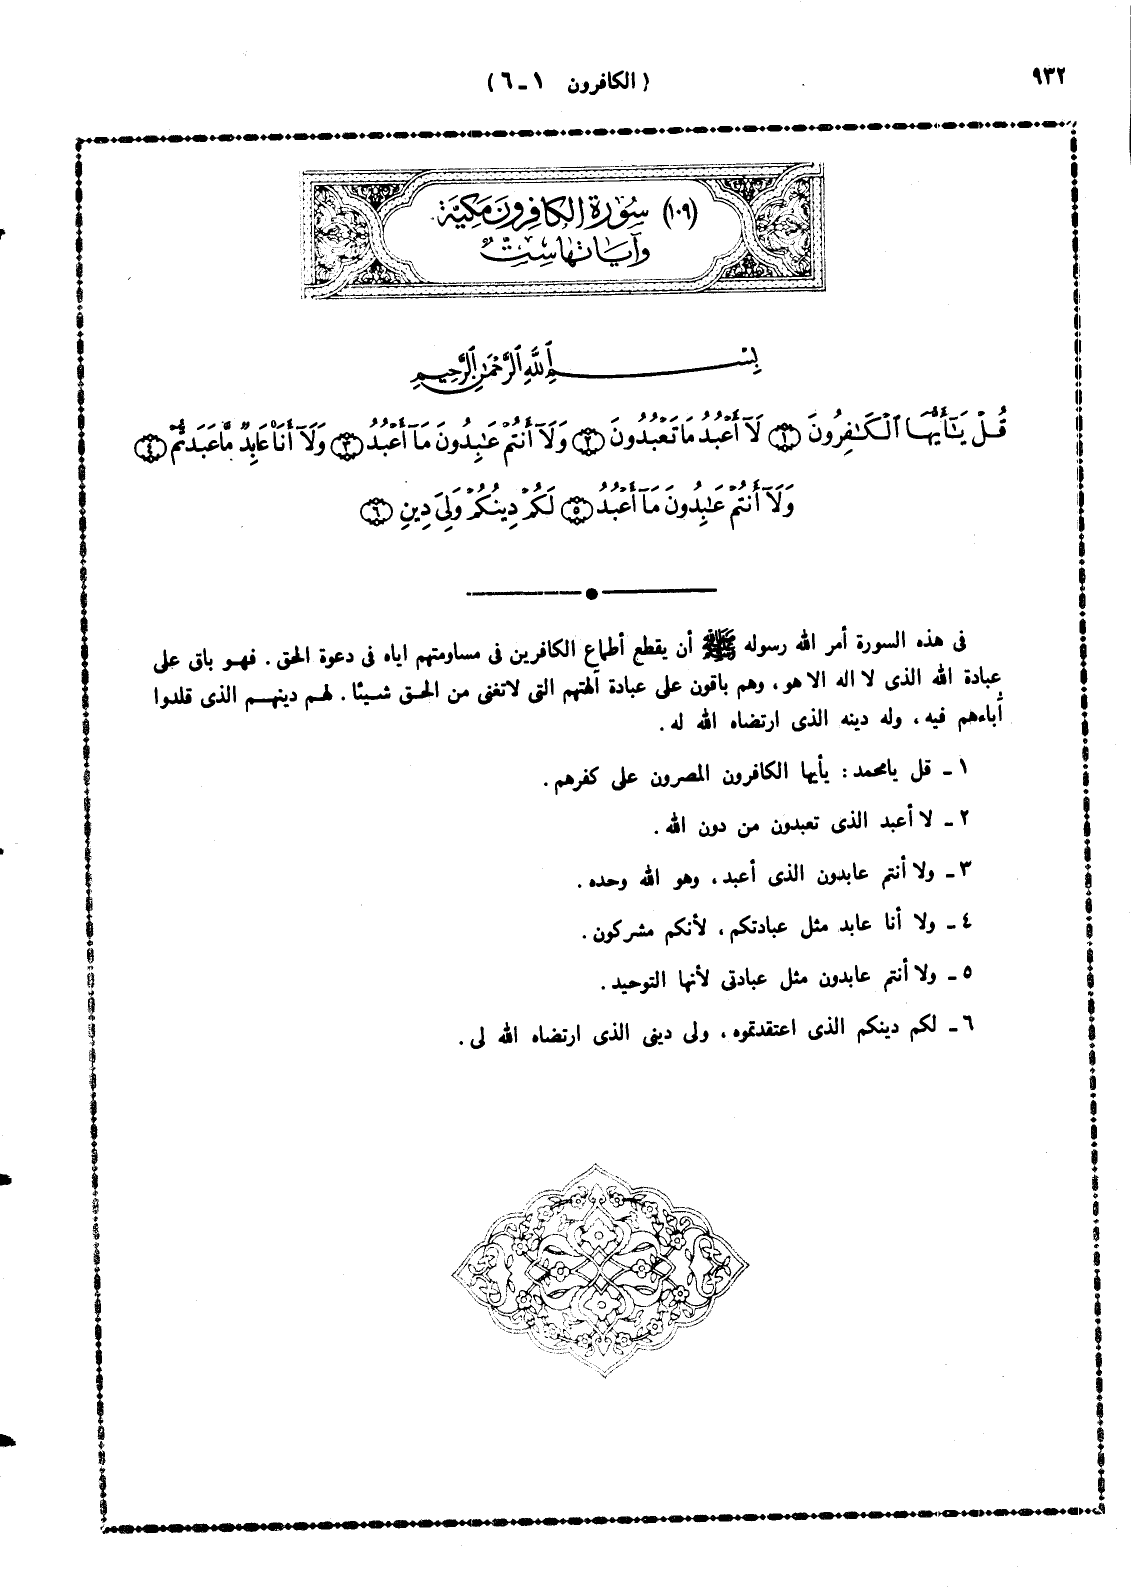 ٩٣٢
( الكافرون ١ ـ ٦ )
(١٠٩) سُورَةُ الكَافِرُونَ مَكيَّة
وَآيَاتها سِتٌّ
بِسْمِ ٱللَّهِ ٱلرَّحْمَٰنِ ٱلرَّحِيمِ
قُلْ يَٰٓأَيُّهَا ٱلْكَٰفِرُونَ ١ لَآ أَعْبُدُ مَا تَعْبُدُونَ ٢ وَلَآ أَنتُمْ عَٰبِدُونَ مَآ أَعْبُدُ ٣ وَلَآ أَنَا۠ عَابِدٌ مَّا عَبَدتُّمْ ٤
وَلَآ أَنتُمْ عَٰبِدُونَ مَآ أَعْبُدُ ٥ لَكُمْ دِينُكُمْ وَلِيَ دِينِ ٦
فى هذه السورة أمر الله رسوله ﷺ أن يقطع أطماع الكافرين فى مساومتهم اياه فى دعوة الحق . فهو باق على
عبادة الله الذى لا اله الا هو ، وهم باقون على عبادة آلهتهم التى لاتغنى من الحق شيئا . لهم دينهم الذى قلدوا
أباءهم فيه ، وله دينه الذى ارتضاه الله له .
١ ـ قل يامحمد : يأيها الكافرون المصرون على كفرهم .
٢ ـ لا أعبد الذى تعبدون من دون الله .
٣ ـ ولا أنتم عابدون الذى أعبد ، وهو الله وحده .
٤ ـ ولا أنا عابد مثل عبادتكم ، لأنكم مشركون .
٥ ـ ولا أنتم عابدون مثل عبادتى لأنها التوحيد .
٦ ـ لكم دينكم الذى اعتقدتموه ، ولى دينى الذى ارتضاه الله لى .